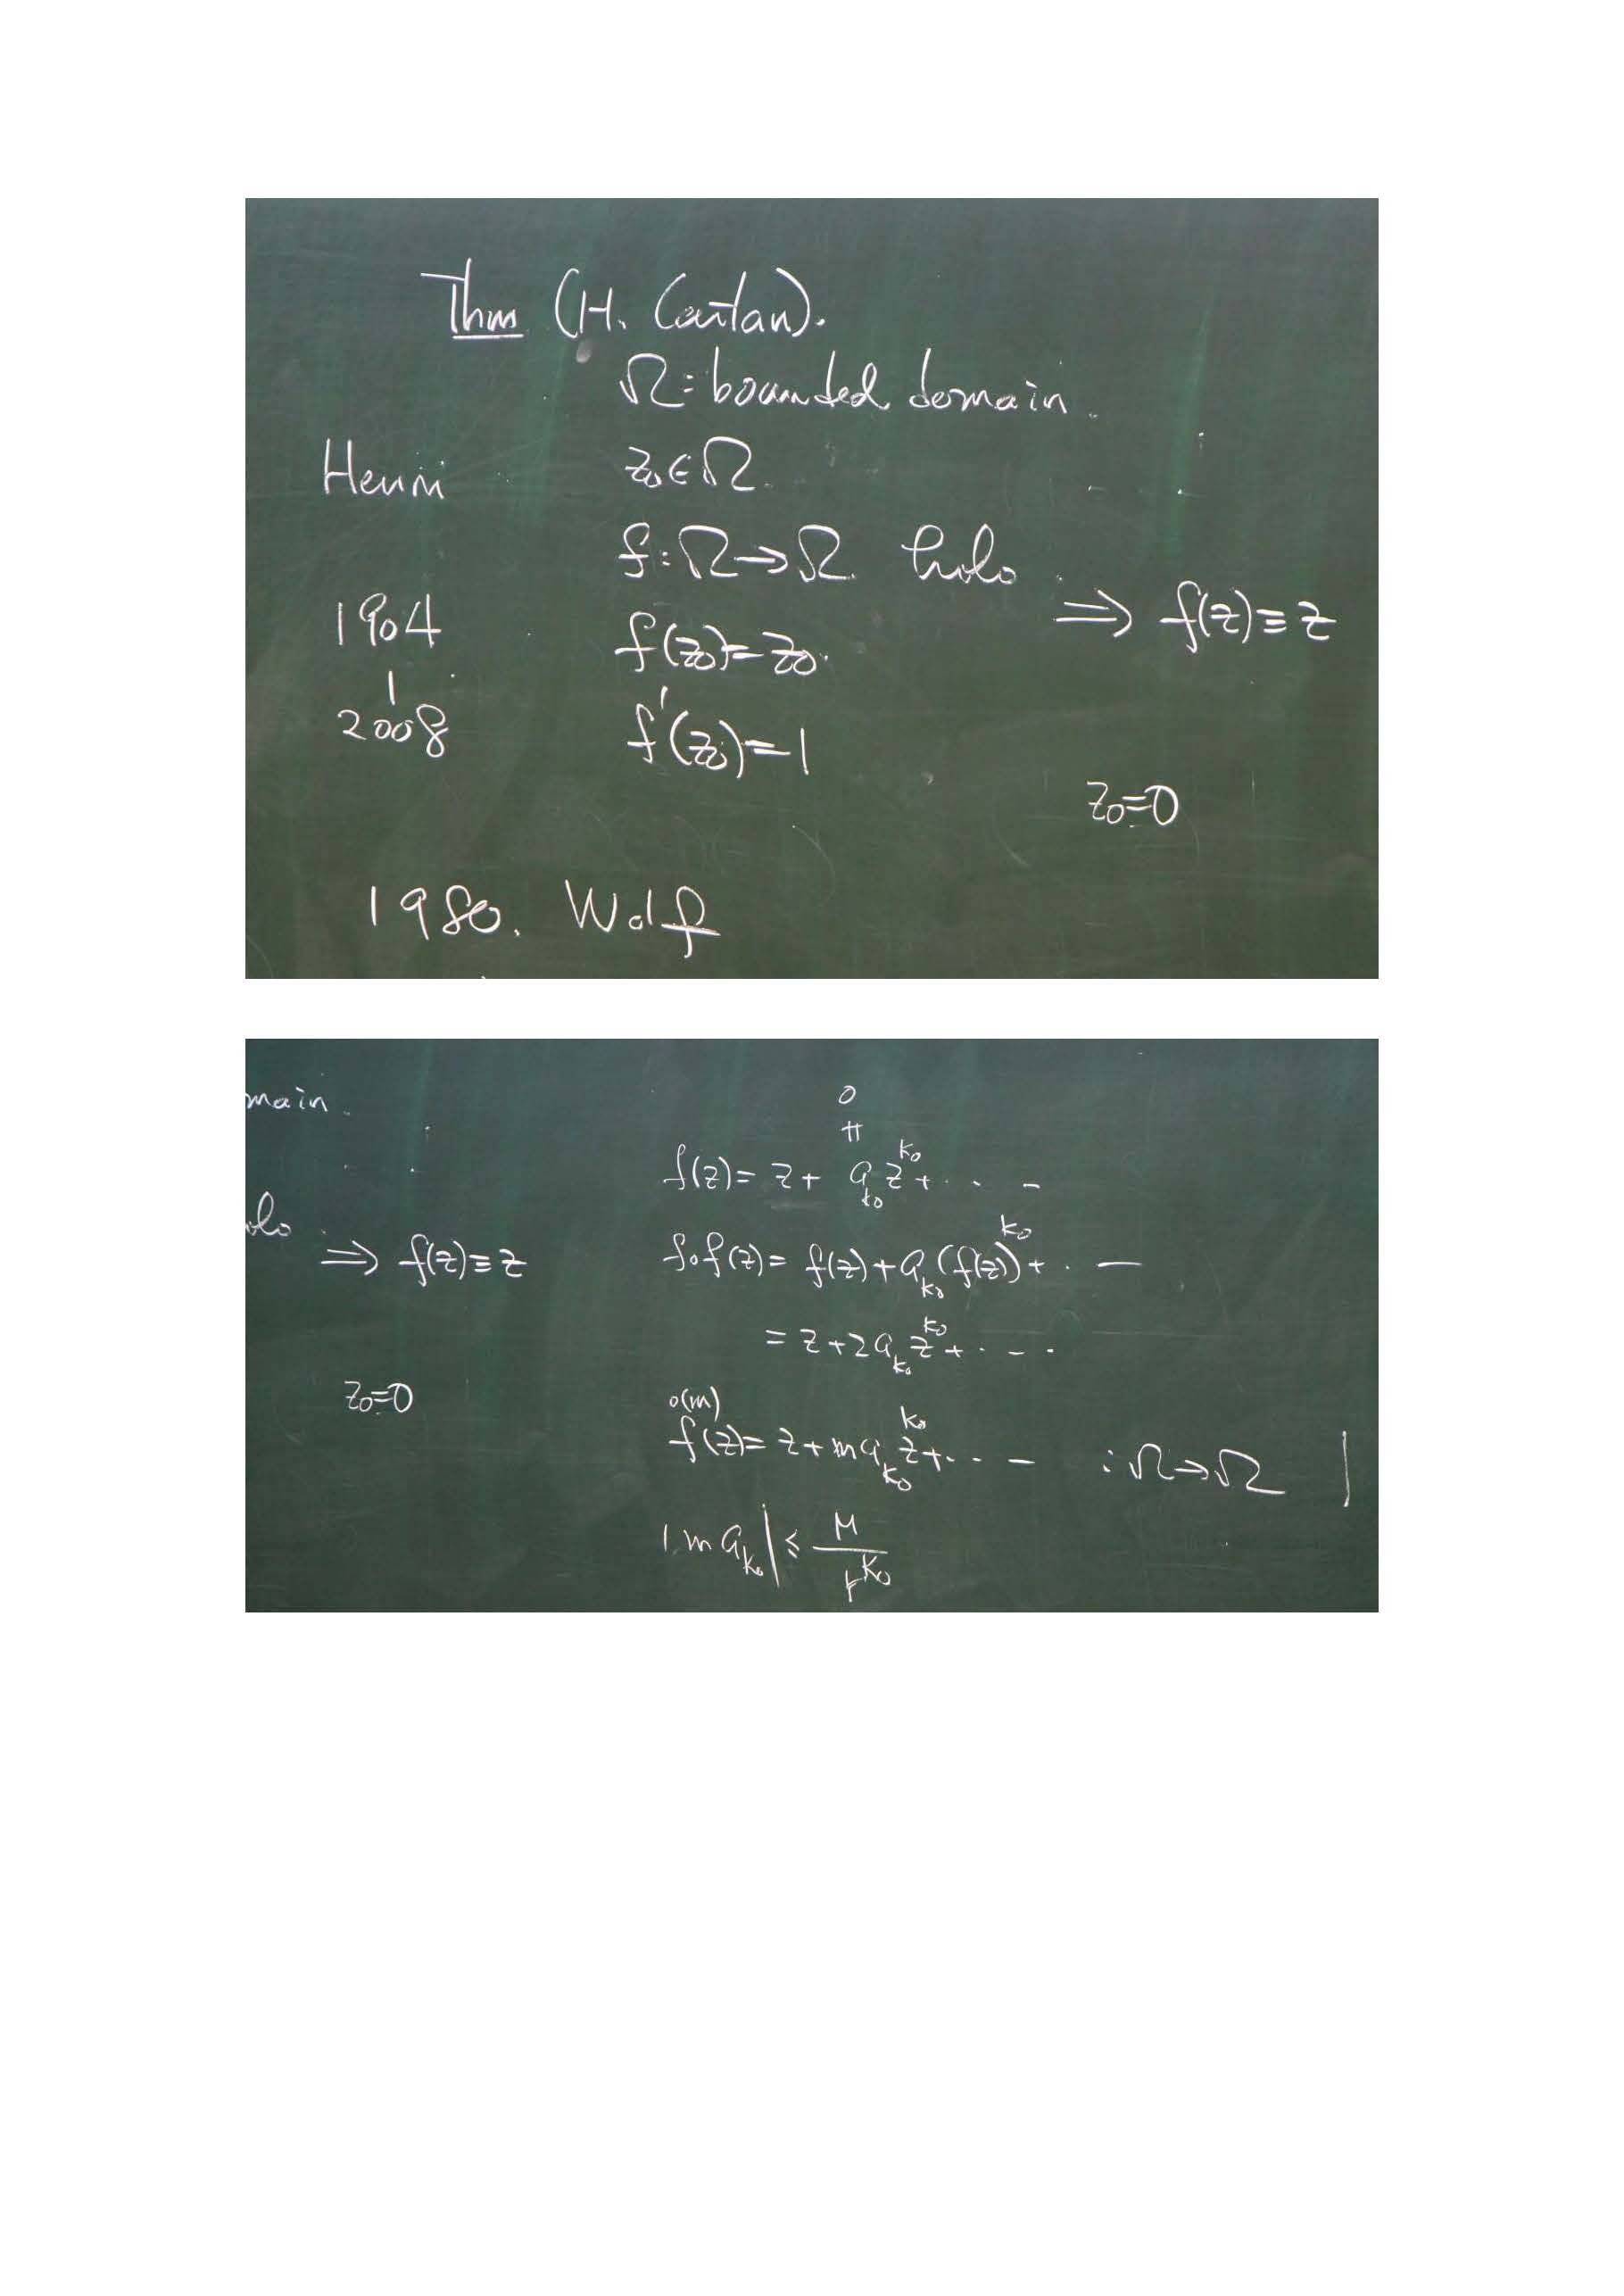 Thm (H. Cartan).
Ω = bounded domain.
Henri
z₀ ∈ Ω.
f : Ω → Ω holo
⇒ f(z) ≡ z
1904
|
2008
f(z₀) = z₀.
f'(z₀) = 1
z₀ = 0
1980. Wolf
main.
olo
⇒ f(z) ≡ z
z₀ = 0
0
≠
f(z) = z + a_{k₀} z^{k₀} + ⋯
f∘f(z) = f(z) + a_{k₀} (f(z))^{k₀} + ⋯
= z + 2a_{k₀} z^{k₀} + ⋯
f^{∘(m)}(z) = z + m a_{k₀} z^{k₀} + ⋯ : Ω → Ω |
|m a_{k₀}| ≤ M / r^{k₀}